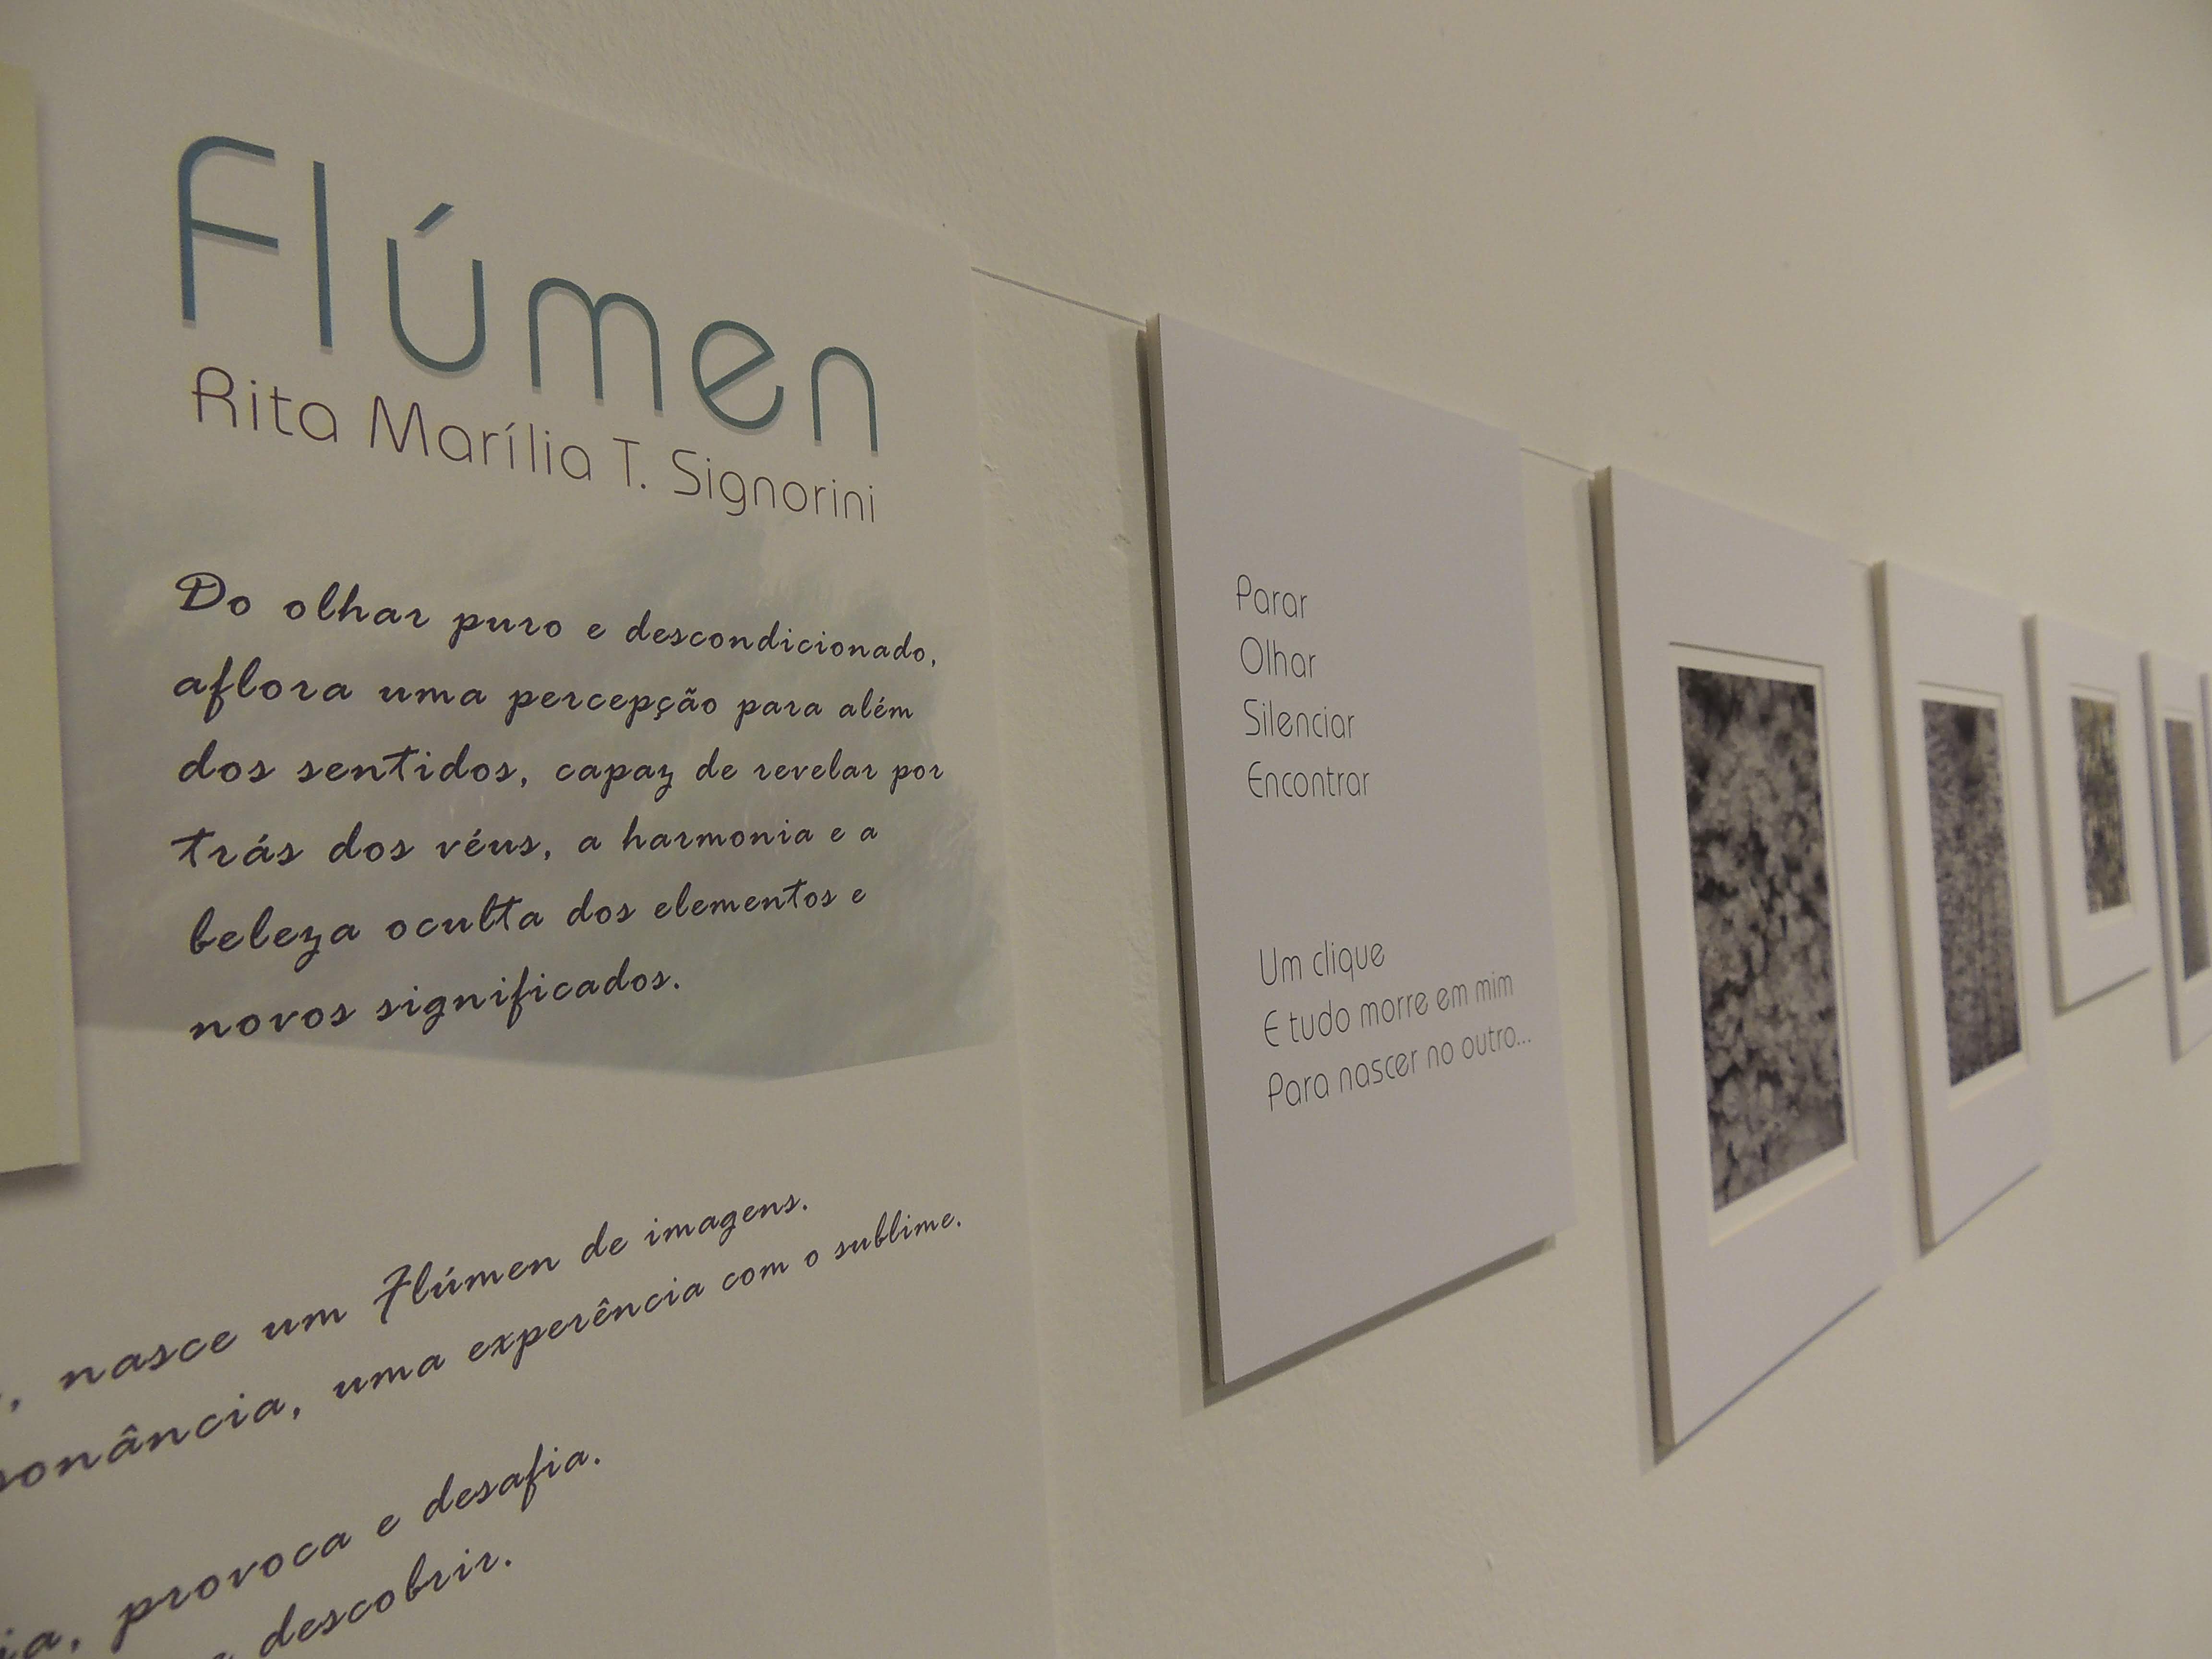 Flúmen
Rita Marília T. Signorini
Do olhar puro e descondicionado,
aflora uma percepção para além
dos sentidos, capaz de revelar por
trás dos véus, a harmonia e a
beleza oculta dos elementos e
novos significados.
, nasce um Flúmen de imagens.
sonância, uma experência com o sublime.
ia, provoca e desafia.
descobrir.
Parar
Olhar
Silenciar
Encontrar
Um clique
E tudo morre em mim
Para nascer no outro...